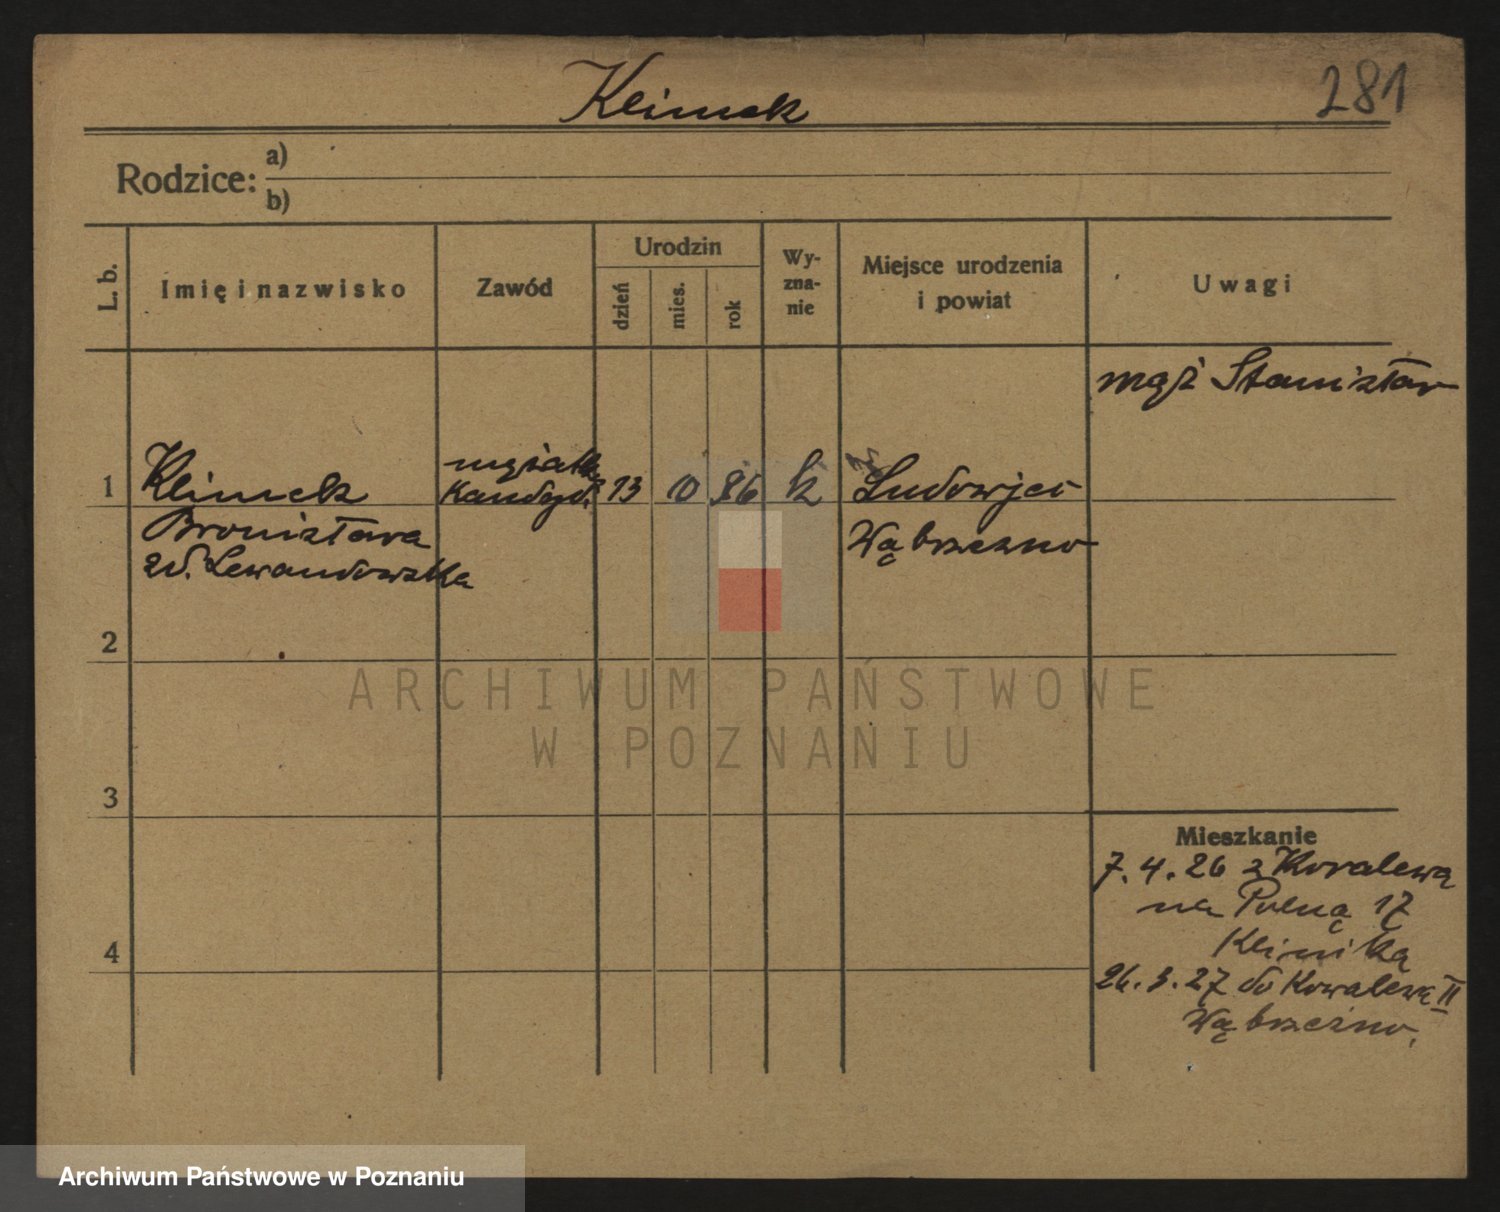 Klimek
281
Rodzice: a)
b)
L. b.
Imię i nazwisko
Zawód
Urodzin
dzień
mies.
rok
Wy-
zna-
nie
Miejsce urodzenia
i powiat
Uwagi
mąż Stanisław
1
Klimek
Bronisława
zd. Lewandowska
13
10
86
k
Wąbrzezno
2
3
4
Mieszkanie
7.4.26 z Kowalewa
na Polną 17
Kliniką
26.3.27 do Kowalewa II
Wąbrzeźno
ARCHIWUM PAŃSTWOWE
W POZNANIU
Archiwum Państwowe w Poznaniu